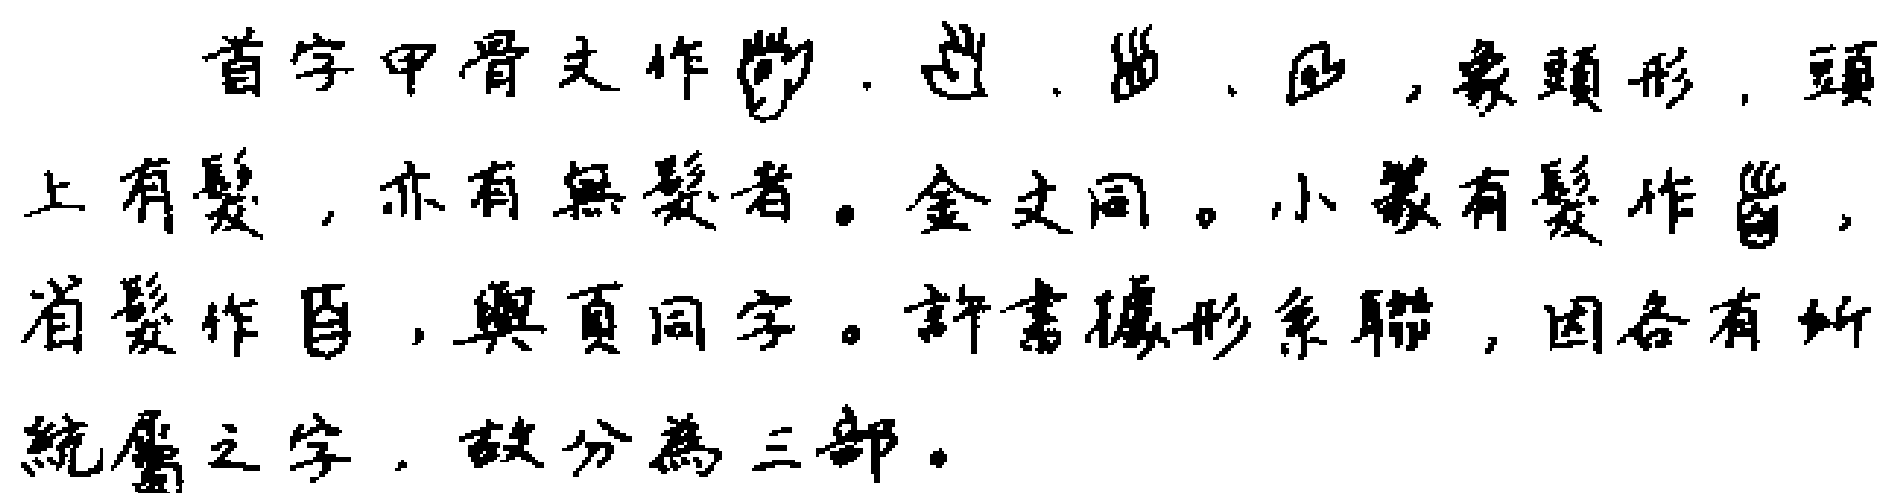 首字甲骨文作、、、,象頭形,頭
上有髮,亦有無髮者。金文同。小篆有髮作,
省髮作𦣻,與頁同字。許書據形系聯,因各有所
統屬之字,故分為三部。